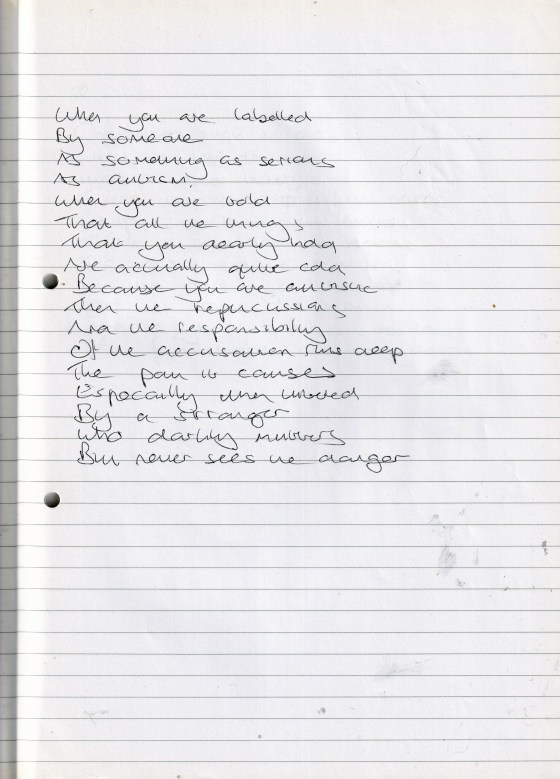 When you are labelled
By someone
As something as serious
As autism?
When you are told
That all the things
That you dearly hold
Are actually quite cold
Because you are autistic
Then the repucussions
And the responsibility
Of the accusation runs deep
The pain it causes
Especailly when
By a stranger
Who darkly mutters
But never sees the danger